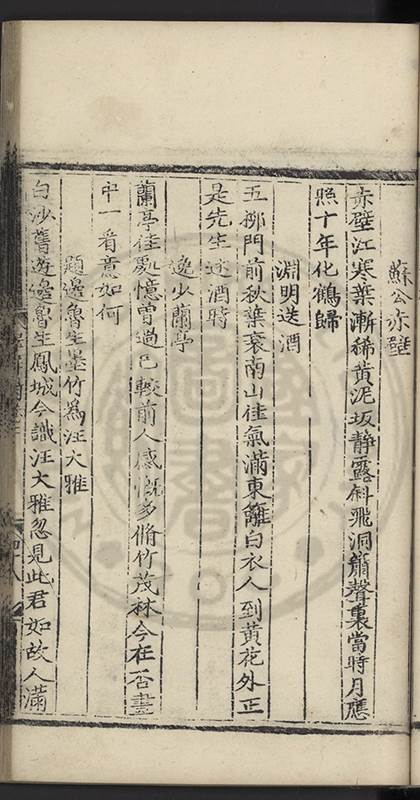 蘇公赤壁
赤壁江寒葉漸稀黄泥坂靜露斜飛洞簫聲裏當時月應
照十年化鶴歸
淵明送酒
五柳門前秋葉衰南山佳氣滿東籬白衣人到黄花外正
是先生送酒時
逸少蘭亭
蘭亭佳亂憶曾過已較前人感慨多脩竹茂林今在否畫
中一看意如何
題邊魯生墨竹爲汪大雅
白沙舊遊邊魯生鳳城今識汪大雅忽見此君如故人滿